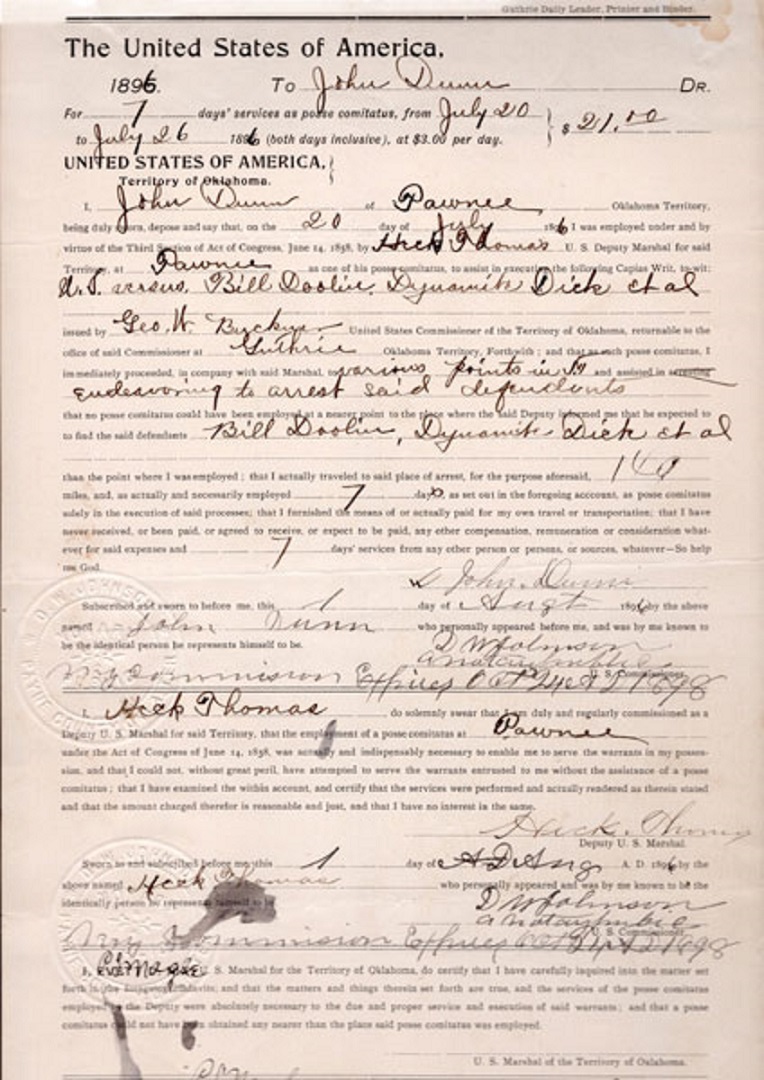 Guthrie Daily Leader, Printer and Binder.
The United States of America,
1896. To John Dunn DR.
For 7 days' services as posse comitatus, from July 20
to July 26 1896 (both days inclusive), at $3.00 per day. } $21.00
UNITED STATES OF AMERICA,
Territory of Oklahoma.
I, John Dunn of Pawnee, Oklahoma Territory,
being duly sworn, depose and say that, on the 20 day of July 1896 I was employed under and by
virtue of the Third Section of Act of Congress, June 14, 1858, by Heck Thomas U. S. Deputy Marshal for said
Territory, at Pawnee as one of his posse comitatus, to assist in executing the following Capias Writ, to-wit:
U.S. versus. Bill Doolin. Dynamite Dick et al
issued by Geo. W. United States Commissioner of the Territory of Oklahoma, returnable to the
office of said Commissioner at Guthrie Oklahoma Territory, Forthwith; and that as such posse comitatus, I
immediately proceeded, in company with said Marshal, to various points in and assisted in arresting
endeavoring to arrest said defendants
that no posse comitatus could have been employed at a nearer point to the place where the said Deputy informed me that he expected to
to find the said defendants Bill Doolin, Dynamite Dick et al
than the point where I was employed; that I actually traveled to said place of arrest, for the purpose aforesaid, 140
miles, and, as actually and necessarily employed 7 days, as set out in the foregoing acccount, as posse comitatus
solely in the execution of said processes; that I furnished the means of or actually paid for my own travel or transportation; that I have
never received, or been paid, or agreed to receive, or expect to be paid, any other compensation, remuneration or consideration what-
ever for said expenses and 7 days' services from any other person or persons, or sources, whatever—So help
me God.
John. Dunn
Subscribed and sworn to before me, this 1 day of Augt 1896 by the above
named John Dunn who personally appeared before me, and was by me known to
be the identical person he represents himself to be. D W Johnson
a notary public
U. S. Commissioner.
My Commission Expires Oct 24 AD 1898
I, Heck Thomas do solemnly swear that I am duly and regularly commissioned as a
Deputy U. S. Marshal for said Territory, that the employment of a posse comitatus at Pawnee
under the Act of Congress of June 14, 1858, was actually and indispensably necessary to enable me to serve the warrants in my posses-
sion, and that I could not, without great peril, have attempted to serve the warrants entrusted to me without the assistance of a posse
comitatus; that I have examined the within account, and certify that the services were performed and actually rendered as therein stated
and that the amount charged therefor is reasonable and just, and that I have no interest in the same.
Heck. Thomas
Deputy U. S. Marshal.
Sworn to and subscribed before me this 1 day of A D Aug A. D. 1896 by the
above named Heck Thomas who personally appeared and was by me known to be the
identically person he represents himself to be D W Johnson
a notary public
U. S. Commissioner.
My Commission Expires Oct 24 AD 1898
I, U. S. Marshal for the Territory of Oklahoma, do certify that I have carefully inquired into the matter set
forth in the foregoing affidavits; and that the matters and things therein set forth are true, and the services of the posse comitatus
employed by the Deputy were absolutely necessary to the due and proper service and execution of said warrants; and that a posse
comitatus could not have been obtained any nearer than the place said posse comitatus was employed.
U. S. Marshal of the Territory of Oklahoma.